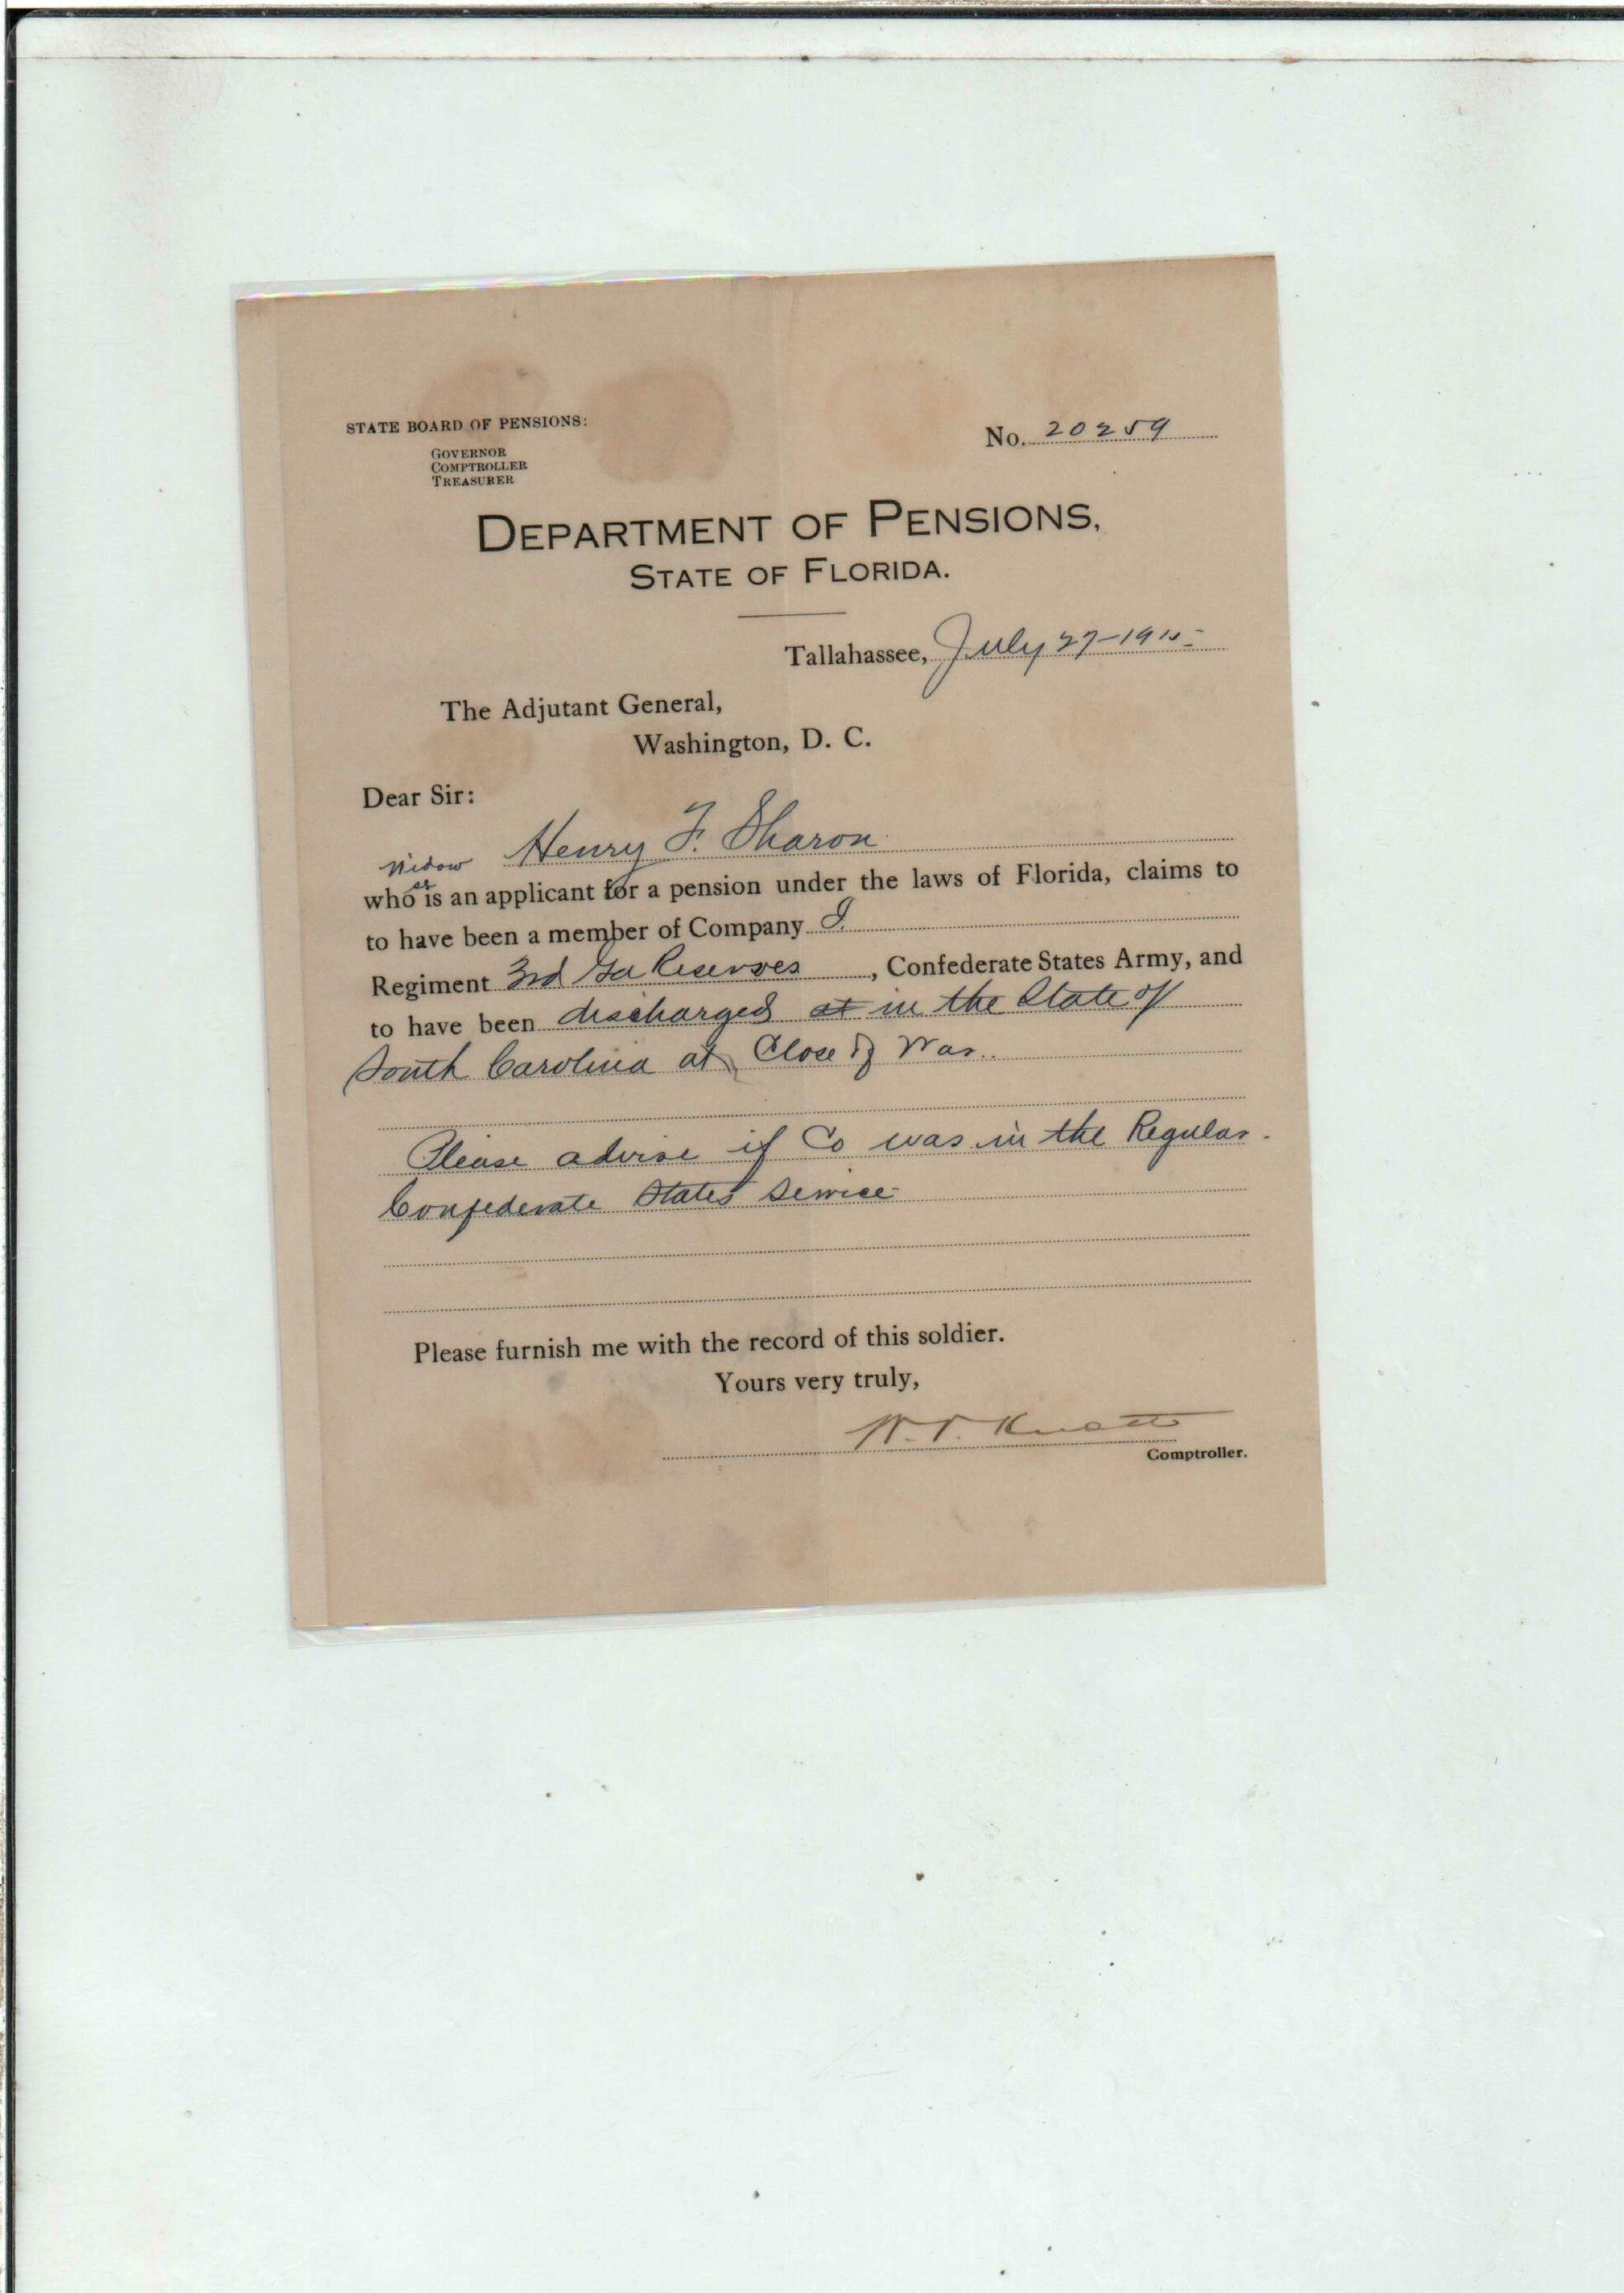 STATE BOARD OF PENSIONS:
GOVERNOR
COMPTROLLER
TREASURER
No. 20259
DEPARTMENT OF PENSIONS,
STATE OF FLORIDA.
Tallahassee, July 27-1915
The Adjutant General,
Washington, D. C.
Dear Sir:
Widow Henry F. Sharon
who is an applicant for a pension under the laws of Florida, claims to
to have been a member of Company I.
Regiment 3rd Ga Reserves, Confederate States Army, and
to have been discharged at in the State of
South Carolina at Close of War.
Please advise if Co was in the Regular
Confederate States Service
Please furnish me with the record of this soldier.
Yours very truly,
W. V. Knott
Comptroller.